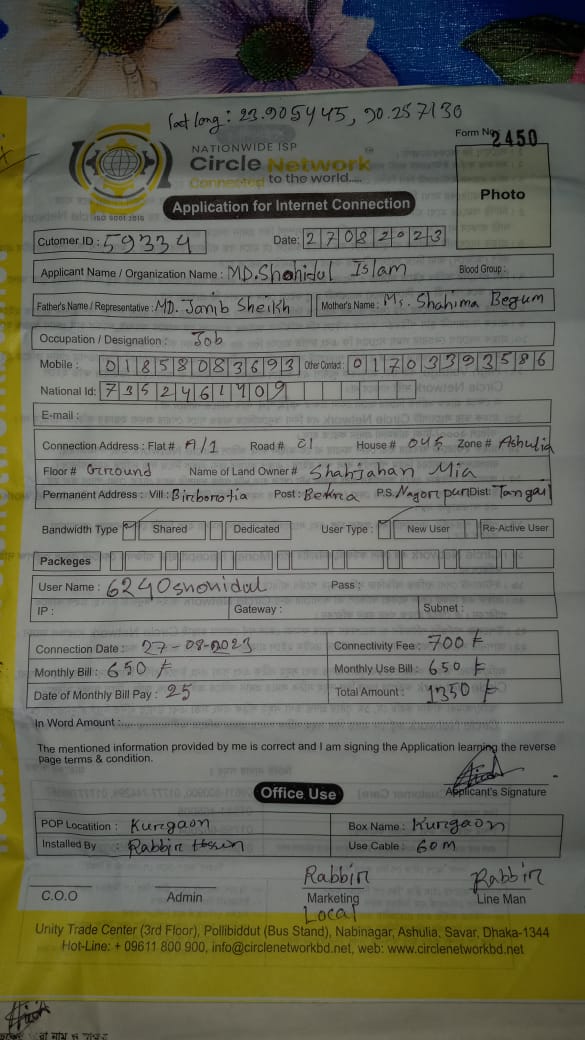 lat long : 23.905445, 90.257130
NATIONWIDE ISP
Circle Network
Connected to the world....
ISO 9001:2015
Form No 2450
Photo
Application for Internet Connection
Cutomer ID : 59334 Date: 27082023
Applicant Name / Organization Name : MD.Shohidul Islam Blood Group :
Father's Name / Representative : MD. Janib Sheikh Mother's Name : Ms. Shahima Begum
Occupation / Designation : Job
Mobile : 01858083693 Other Contact : 01703393586
National Id: 7352461709
E-mail :
Connection Address : Flat # A/1 Road # 01 House # 045 Zone # Ashulia
Floor # Giround Name of Land Owner # Shahjahan Mia
Permanent Address : Vill : Birborotia Post : Bekra P.S. Nagorpur Dist: Tangail
Bandwidth Type Shared Dedicated User Type : New User Re-Active User
Packeges
User Name : 6240shohidul Pass :
IP : Gateway : Subnet :
Connection Date : 27-08-2023 Connectivity Fee : 700 ৳
Monthly Bill : 650 ৳ Monthly Use Bill : 650 ৳
Date of Monthly Bill Pay : 25 Total Amount : 1350 ৳
In Word Amount :
The mentioned information provided by me is correct and I am signing the Application learning the reverse
page terms & condition.
Applicant's Signature
Office Use
POP Locatition : Kurgaon Box Name : Kurgaon
Installed By : Rabbir Use Cable : 60M
Rabbir Rabbir
C.O.O Admin Marketing Line Man
Local
Unity Trade Center (3rd Floor), Pollibiddut (Bus Stand), Nabinagar, Ashulia, Savar, Dhaka-1344
Hot-Line: + 09611 800 900, info@circlenetworkbd.net, web: www.circlenetworkbd.net